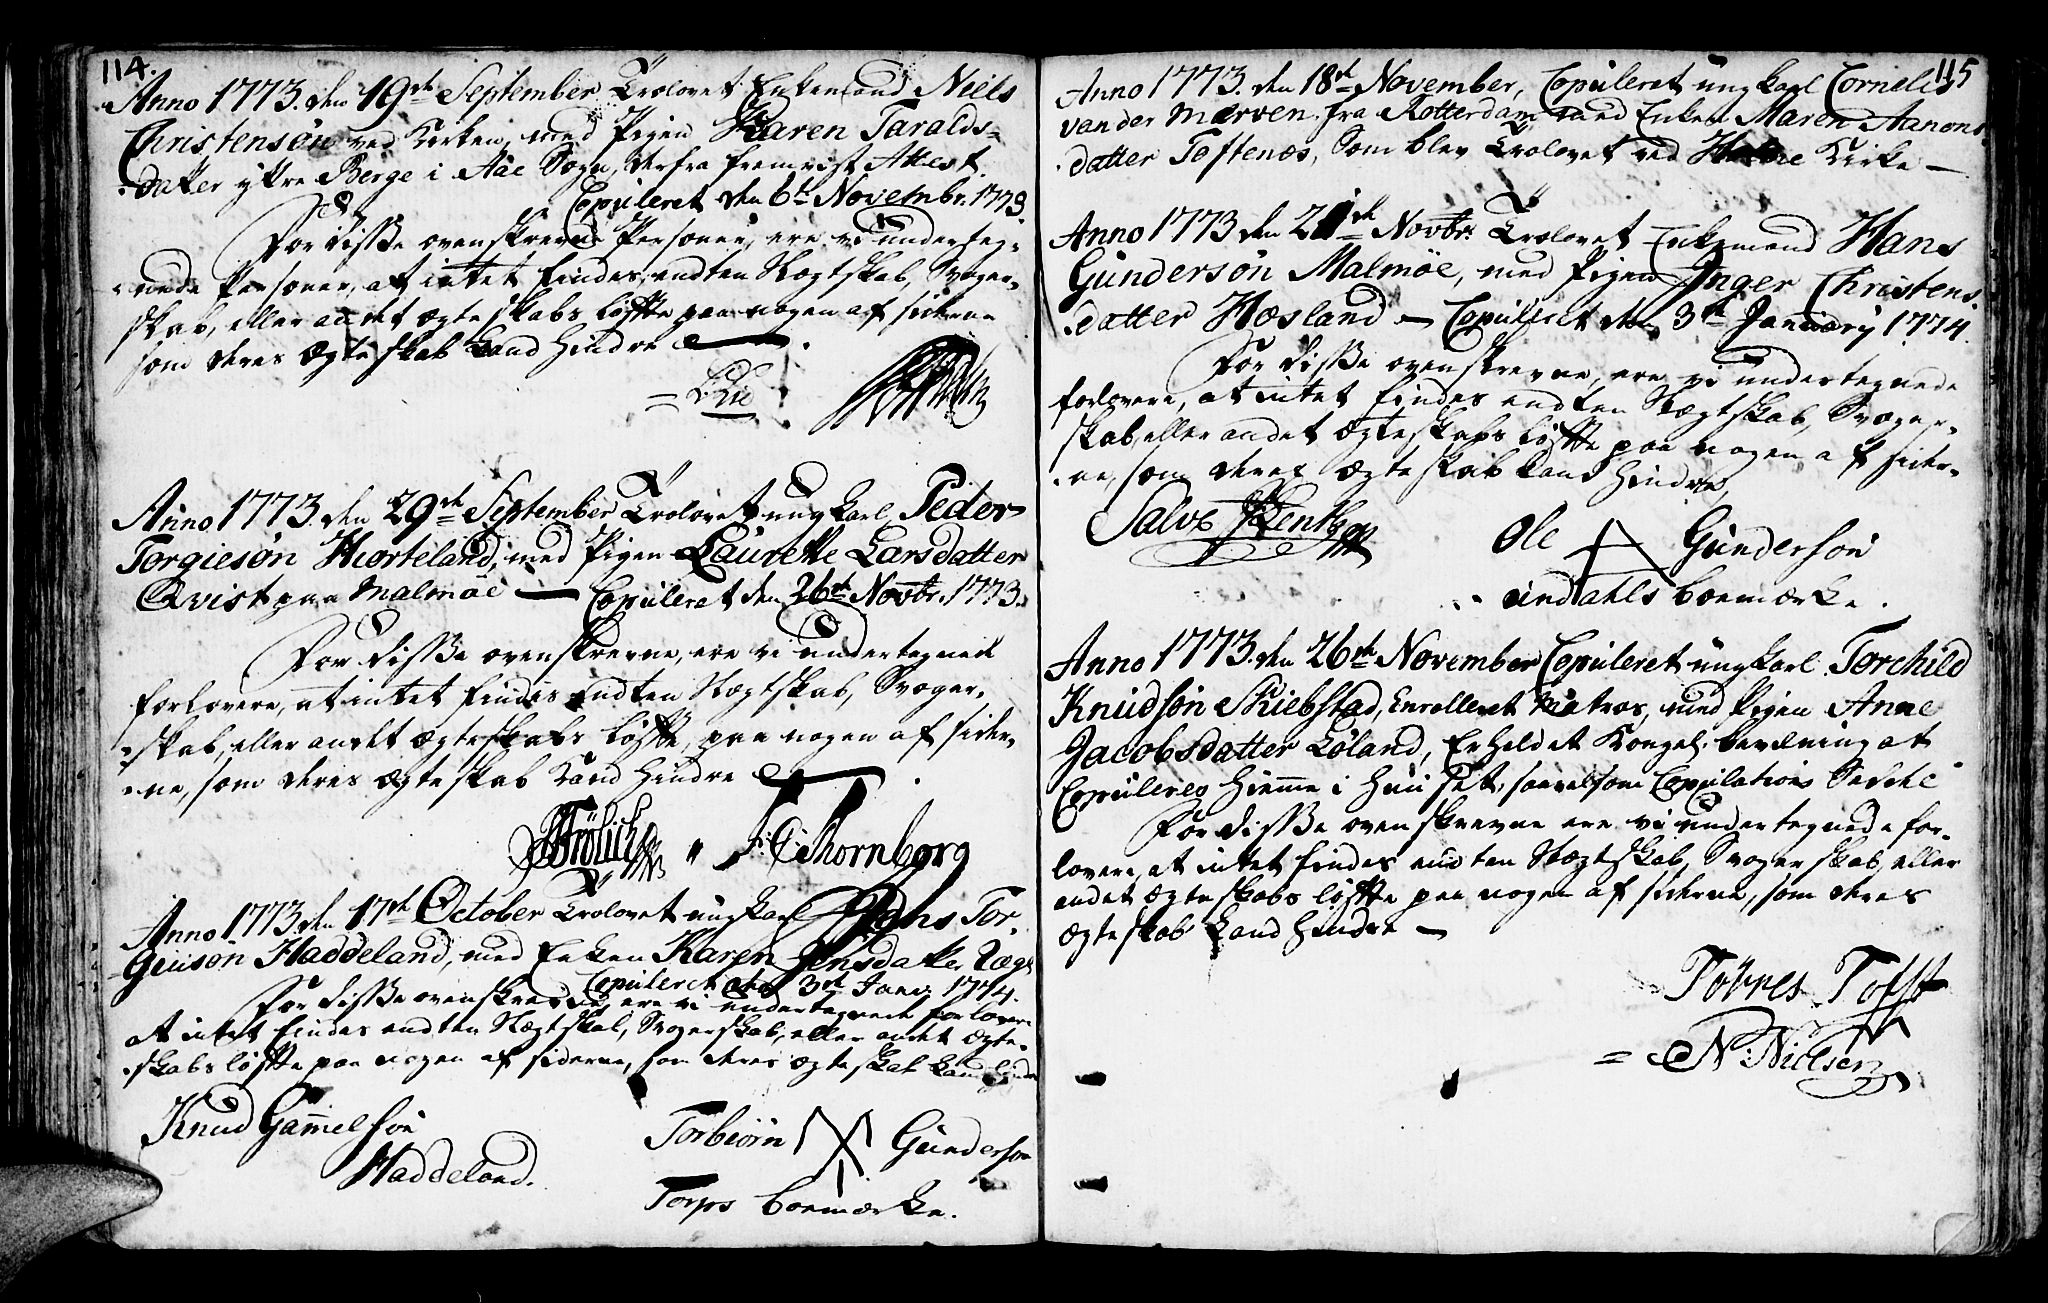 114.
Anno 1773. den 19de September Trolovet Enkemand Niels
Christensøn ved Kirken, med Pigen Karen Taralds-
datter ytre Berge i Aae Sogn, derfra fremvist Attest.
Copuleret den 6te Novembr. 1773.
For disse ovenskrevne Personer, ere vi underteg-
nede Personer, at intet findes, endten Slægtskab, Svoger-
skab, eller andet ægteskabs løfte paa nogen af siderne
som deres Ægteskab kand hindre
Anno 1773. den 29de September Trolovet ung karl Peder
Torgiesøn Hiorteland, med Pigen Laurette Larsdatter
Qvist paa Malmøe — Copuleret den 26de Novbr. 1773.
For disse ovenskrevne, ere vi undertegnede
forlovere, at intet findes endten Slægtskab, Svoger-
skab, eller andet Ægteskabs løfte, paa nogen af sider-
ne, som deres Ægteskab kand hindre
Frölich F: C: Thornborg
Anno 1773. den 17de October Trolovet ung karl Hans Tor-
giusøn Haddeland, med Enken Karen Jensdatter
Copuleret den 3de Janv. 1774.
For disse ovenskrevne, ere vi undertegnede forlovere
at intet findes endten Slægtskab, Svogerskab, eller andet ægte-
skabs løfte paa nogen af siderne, som deres ægteskab kand hindre
Knud Gamelsøn
Haddeland.
Torbiørn Gundersøn
Torps boemærke.
115
Anno 1773. den 18de November, Copuleret ung karl Cornelis
vander Mærven fra Rotterdam med Enken Maren Aanons-
datter Toftenæs, Som blev Trolovet ved Kirke —
Anno 1773 den 21de Novbr. Trolovet Enkemand Hans
Gundersøn Malmøe, med Pigen Inger Christens-
datter Hæsland — Copuleret den 3de January 1774.
For disse ovenskrevne, ere vi undertegnede
forlovere, at intet findes endten Slægtskab, Svoger-
skab, eller andet Ægteskabs løfte paa nogen af sider-
ne, som deres Ægteskab kand hindre,
Salve
Ole Gundersøn
Lindahls boemærke.
Anno 1773. den 26de November Copuleret ung karl Torchild
Knudsøn Skiebstad, Enrolleret Matros, med Pigen Anne
Jacobsdatter Løland, Erholdet Kongel. bevilning at
Copuleres hieme i Huuset, saavelsom Copulations Sedele
For disse ovenskrevne ere vi undertegnede for-
lovere, at intet findes endten Slægtskab, Svogerskab, eller
andet Ægteskabs løfte paa nogen af siderne, som deres
Ægteskab kand hindre —
Torres Toft
N: Nielsen